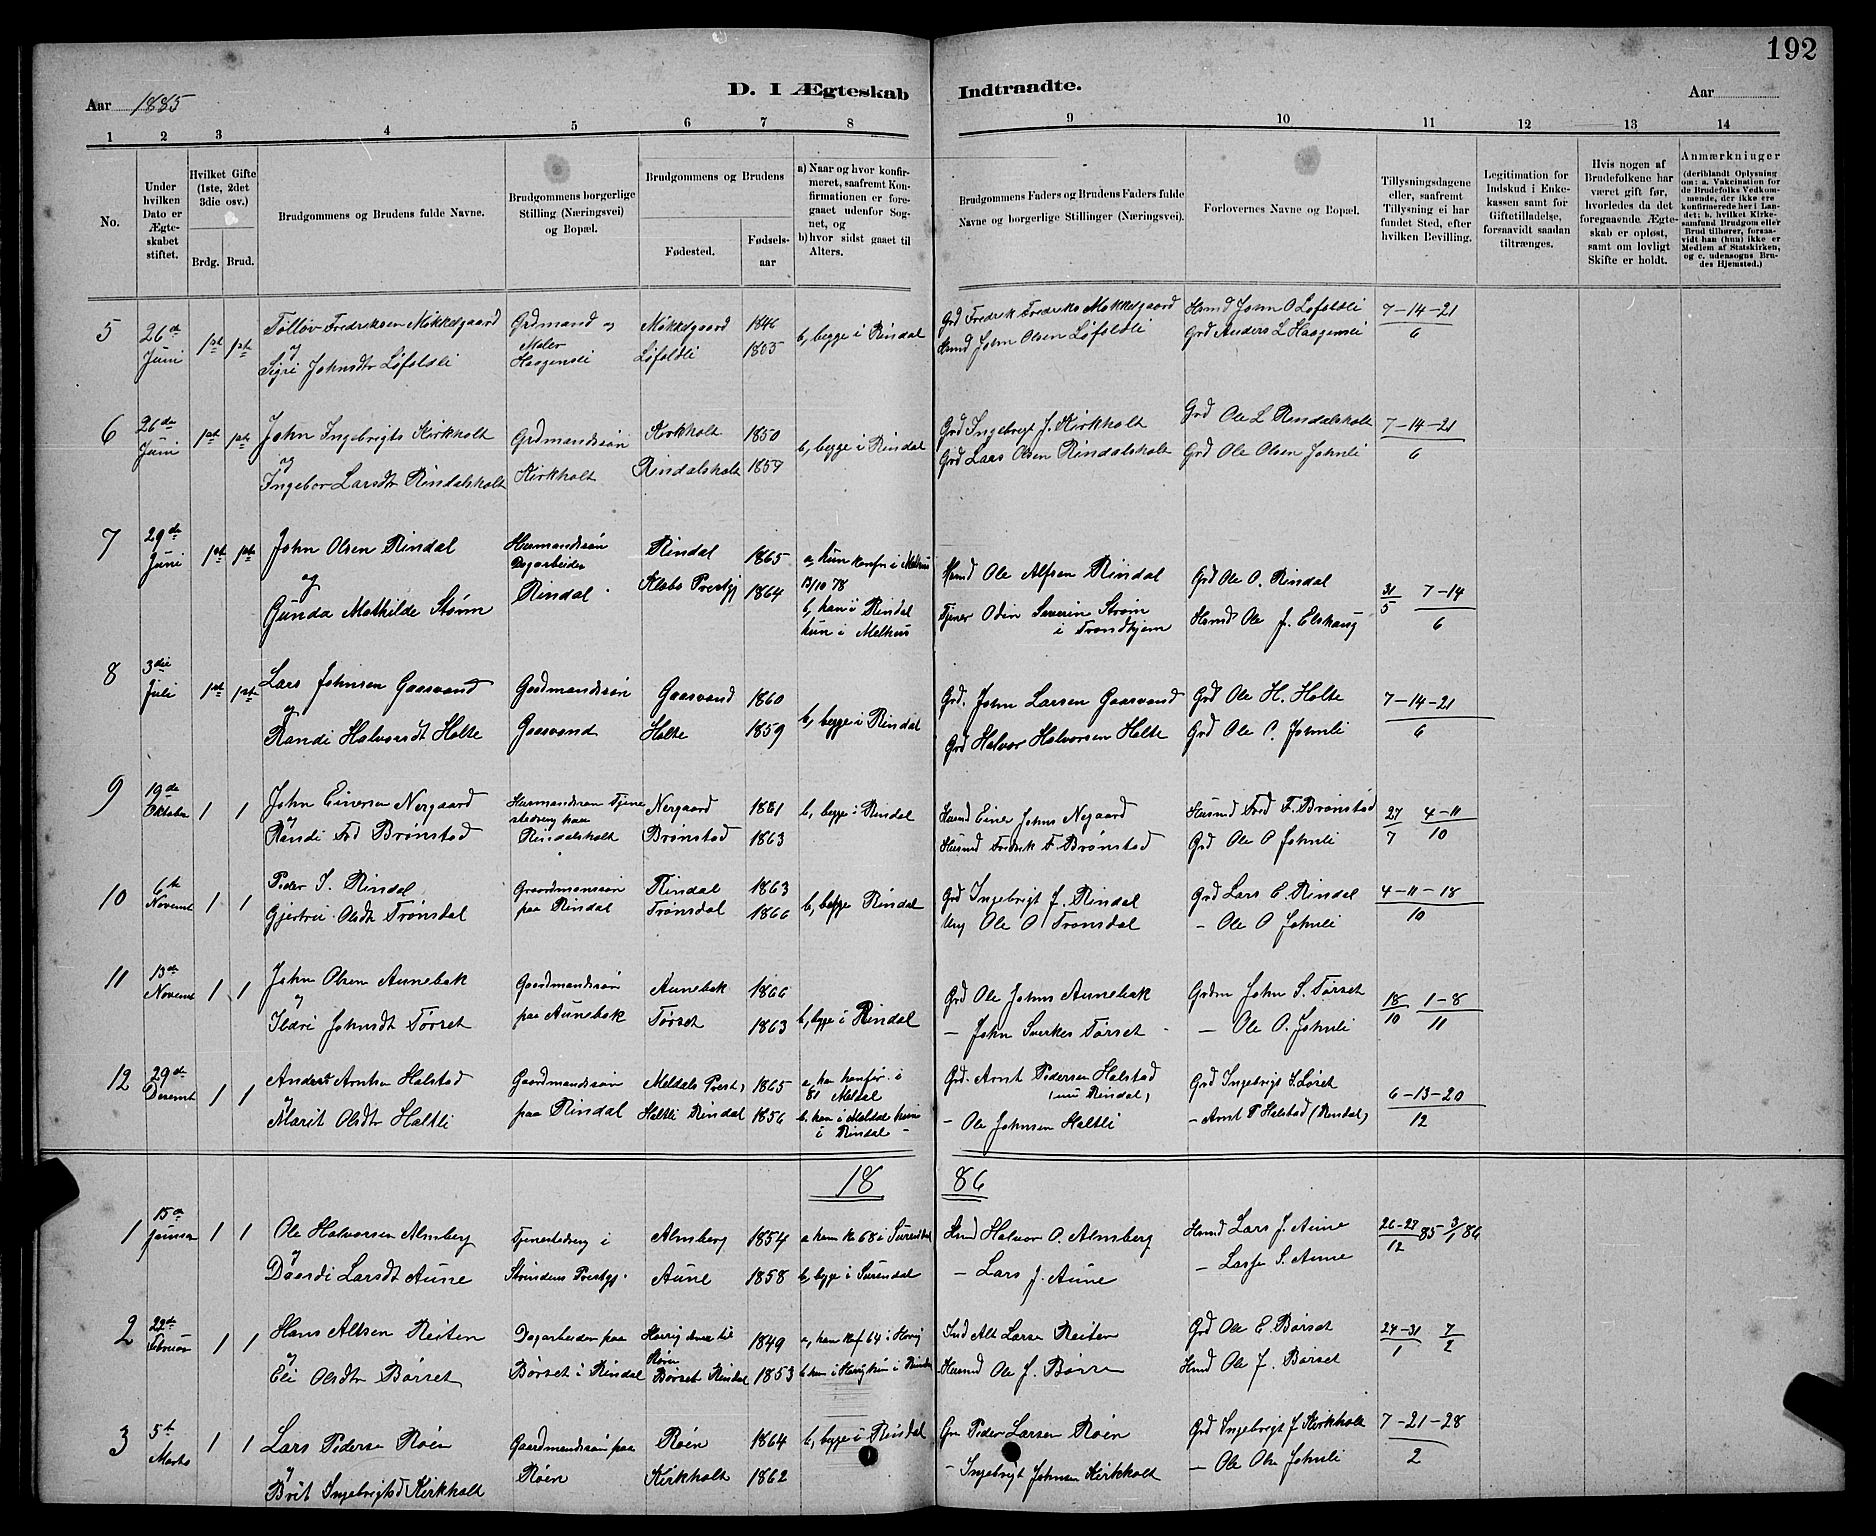 192
Aar 1885
D. I Ægteskab Indtraadte.
Aar
1 2 3 4 5 6 7 8 9 10 11 12 13 14
No.
Under hvilken Dato er Ægteskabet stiftet.
Hvilket Gifte (1ste, 2det 3die osv.)
Brdg. Brud.
Brudgommens og Brudens fulde Navne.
Brudgommens borgerlige Stilling (Næringsvei) og Bopæl.
Brudgommens og Brudens
Fødested.
Fødselsaar
a) Naar og hvor konfirmeret, saafremt Konfirmationen er foregaaet udenfor Sognet, og
b) hvor sidst gaaet til Alters.
Brudgommens Faders og Brudens Faders fulde Navne og borgerlige Stillinger (Næringsvei).
Forlovernes Navne og Bopæl.
Tillysningsdagene eller, saafremt Tillysning ei har fundet Sted, efter hvilken Bevilling.
Legitimation for Indskud i Enkekassen samt for Giftetilladelse, forsaavidt saadan tiltrænges.
Hvis nogen af Brudefolkene har været gift før, hvorledes da det foregaaende Ægteskab er opløst, samt om lovligt Skifte er holdt.
Anmærkninger (deriblandt Oplysning om: a. Vakcination for de Brudefolks Vedkommende, der ikke ere konfirmerede her i Landet; b. hvilket Kirkesamfund Brudgom eller Brud tilhører, forsaavidt han (hun) ikke er Medlem af Statskirken, og c. udensogns Brudes Hjemsted.)
5 26de Juni 1ste 1ste Tølløv Fredriksen Møkkelgaard Grdmand og Møkkelgaard 1846 b, begge i Rindal Grd Fredrik Fredriks Møkkelgaard Hsmd John O Løfaldli 7-14-21
og Maler
Sigri Johnsdtr Løfaldli Haagensli Løfaldli Hsmd John Olsen Løfaldli Grd Anders L Haagensli 6
6 26de Juni 1ste 1ste John Ingebrigts Kirkholt Grdmandssøn Kirkholt 1850 b, begge i Rindal Grd Ingebrigt J. Kirkholt Grd Ole L Rindalsholt 7-14-21
og
Ingebor Larsdtr Rindalsholt Kirkholt Rindalsholt 1859 Grd Lars Olsen Rindalsholt Grd Ole Olsen Johnli 6
7 29de Juni 1ste 1ste John Olsen Rindal Husmandssøn Dagarbeider Rindal 1865 a, hun konfn i Melhus 13/10 78 Hsmd Ole Alfsen Rindal Grd Ole O. Rindal 31/5 7-14
og
Gunda Mathilde Strøm Rindal Klæbo Prestgj 1864 b, han i Rindal hun i Melhus Tjener Odin Severin Strøm i Trondhjem Hsmd Ole J. Elshaug 6
8 3die Juli 1ste 1ste Lars Johnsen Gaasvand Gaardmandssøn Gaasvand 1860 b, begge i Rindal Grd. John Larsen Gaasvand Grd Ole H. Holte 7-14-21
og
Randi Halvorsdt Holte Gaasvand Holte 1859 Grd Halvor Halvorsen Holte Grd Ole O. Johnli 6
9 19de Oktober 1 1 John Einersen Nergaard Husmandssøn Tjenestedreng paa Rindalsholt Nergaard 1861 b, begge i Rindal Hsmd Einer Johns Negaard Husmd Fred F. Brønstad 27/7 4-11
og
Randi Fred Brønstad Brønstad 1863 Husmd Fredrik F Brønstad Grd Ole O Johnli 10
10 6te Novemb 1 1 Peder I. Rindal Gaardmanssøn Rindal 1863 b, begge Rindal Grd Ingebrigt J. Rindal Grd Lars E. Rindal 4-11-18
Gjertrui Olsdtr Trønsdal paa Rindal Trønsdal 1866 Ole O Trønsdal - Ole O Johnli 10
11 13de Novemb 1 1 John Olsen Aunebak Gaardmandssøn Aunebak 1866 b, begge i Rindal Grd Ole Johns Aunebak Grdm John S. Tørset 18/10 1-8
og
Ildri Johnsdt Tørset paa Aunebak Tørset 1863 - John Sverkes Tørset - Ole O. Johnli 11
12 29de Decemb 1 1 Anders Arntsen Halstad Gaardmandssøn Meldals Prest. 1865 a, han konfir. i 81 Meldal Grd. Arnt Pedersen Halstad (nu Rindal) Grd Ingebrigt S. Løset 6-13-20
og
Marit Olsdtr Haltli paa Rindal Haltli Rindal 1856 b. han i Meldal hun i Rindal - Ole Johnsen Haltli - Arnt P Halstad (Rindal) 12
18 86
1 15de Januar 1 1 Ole Halvorsen Almberg Tjenestedreng i Almberg 1854 a han k 68 i Surendal Hsmd Halvor O. Almberg Hsmd Lars J. Aune 26-27/12 85 3/1 86
og
Dordi Larsdt Aune Strindens Prestgj. Aune 1858 b, begge i Surendal - Lars J. Aune - Lasse S. Aune
2 22de Februar 1 1 Hans Altsen Reiten Dagarbeider paa 1849 a, han Kf 64 i Horrig Alt Larsen Reiten Grd Ole E. Børset 24-31/1 7/2
og
Eli Olsdtr Børset Børset i Rindal Børset Rindal 1853 b han i Horrig hun i Rindal Husmd Ole J. Børse Hsmd Ole J. Børset
3 5te Marts 1 1 Lars Pederse Røen Gaardmandssøn paa Røen 1864 b, begge i Rindal Grd Peder Larsen Røen Grd Ingebrigt J Kirkholt 7-21-28
og
Brit Ingebrigtsd Kirkholt Røen Kirkholt 1862 - Ingebrigt Johnsen Kirkholt - Ole Olse Johnli 2